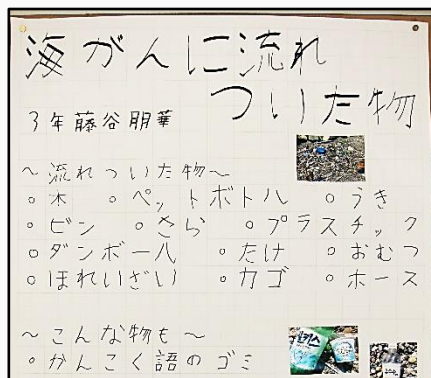 海がんに流れ
ついた物
3年藤谷朋華
～流れついた物～
○木 ○ペットボトル ○うき
○ビン ○さら ○プラスチック
○ダンボール ○たけ ○おむつ
○ほれいざい ○カゴ ○ホース
～こんな物も～
○かんこく語のゴミ